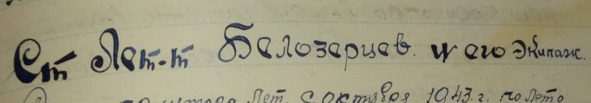 Ст Лет-т Белозерцев. и его экипаж.
лет с октября 1943 г. по лето